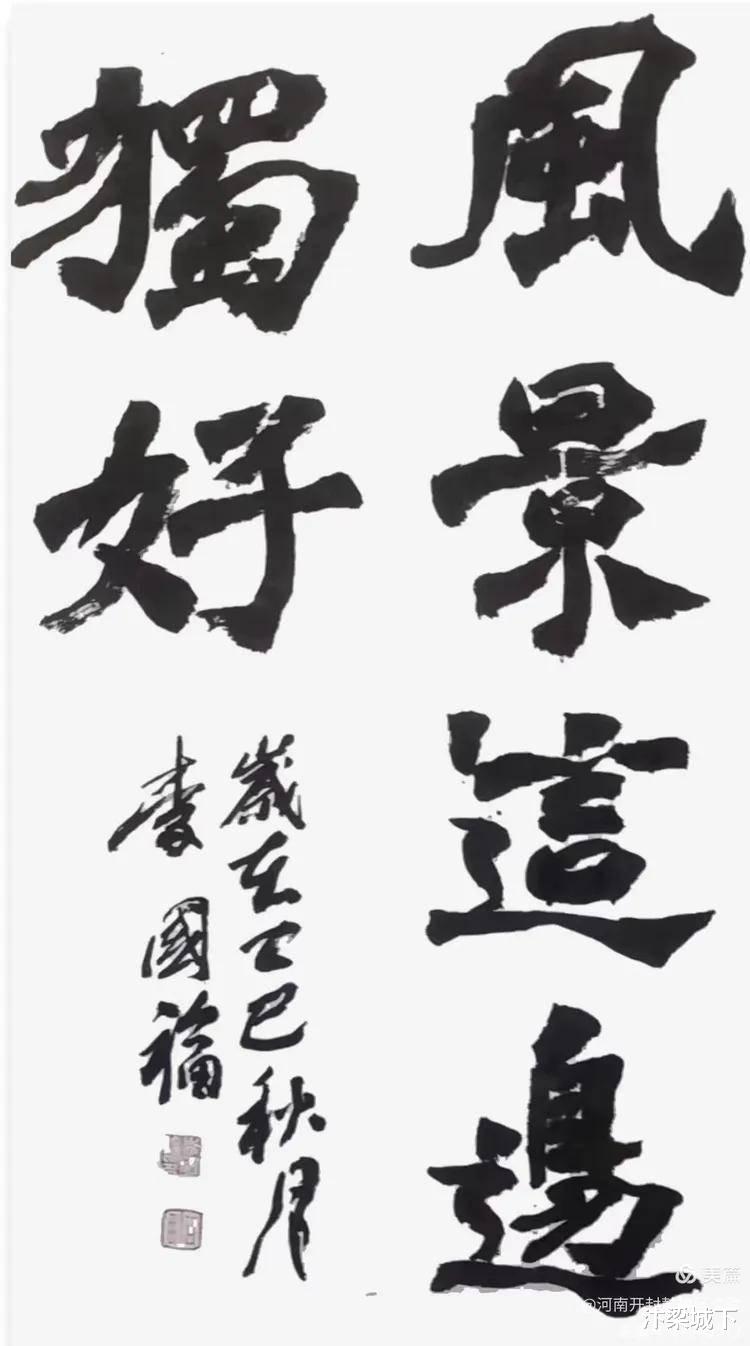 風景這邊
獨好
歲在乙巳秋月
李國福
美篇
@河南开封
汴梁城下